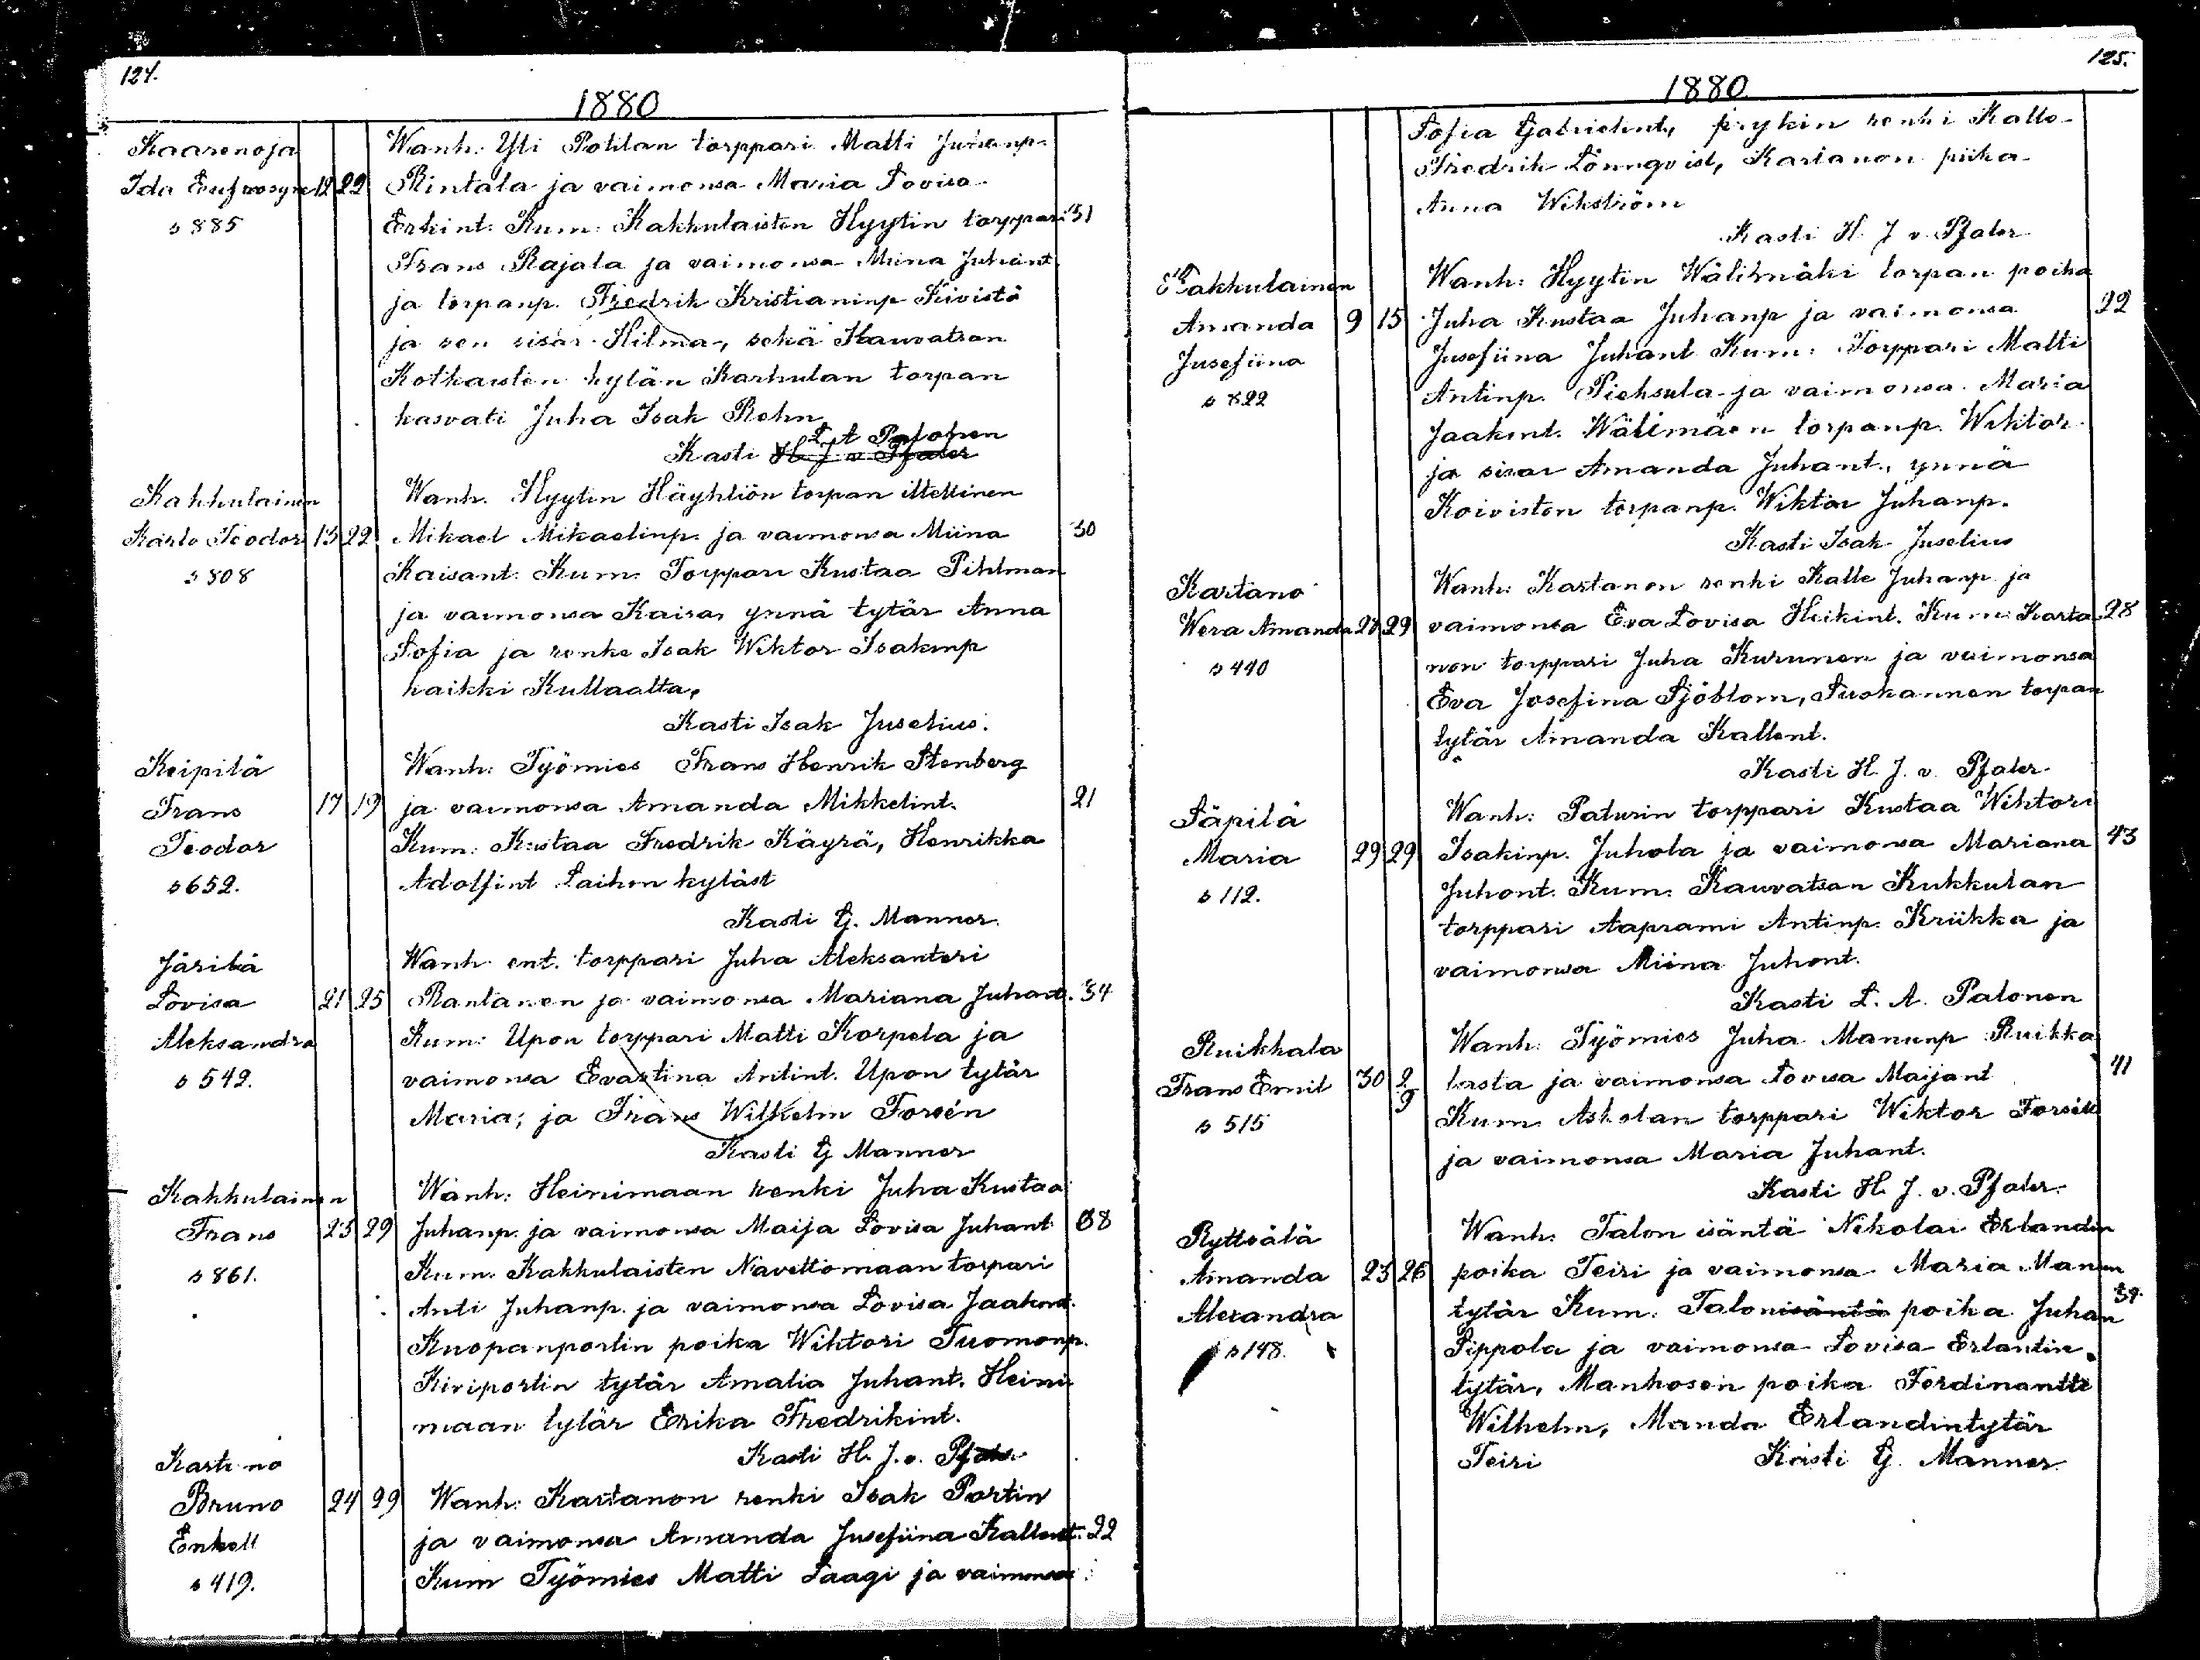 124.
1880
Kaarenoja
Ida Eufrosyne 12 22
s 885
Wanh. Yli Potilan torppari Matti Juhanp.
Rintala ja vaimonsa Maria Lovisa
Erkint. Kum. Kakkulaisten Hyytin torppari 31
Frans Rajala ja vaimonsa Miina Juhant
ja torpanp. Fredrik Kristianinp Kivistö
ja sen sisar Hilma, sekä Kauvatsan
Kotkaisten kylän Karhulan torpan
kasvati Juha Isak Rehn
L A Palonen
Kasti H. J. v Pfaler
Kakkulainen
Karlo Teodor 13 22
s 808
Wanh. Hyytin Häyhtiön torpan ittellinen
Mikael Mikaelinp. ja vaimonsa Miina 30
Kaisant. Kum. Torppari Kustaa Pihlman
ja vaimonsa Kaisa, ynnä tytär Anna
Sofia ja renki Isak Wiktor Isakinp
kaikki Kullaalta,
Kasti Isak Juselius.
Keipilä
Frans 17 19
Teodor
s 652.
Wanh: Työmies Frans Henrik Stenberg
ja vaimonsa Amanda Mikkelint. 21
Kum. Kustaa Fredrik Käyrä, Henrikka
Adolfint Laihon kyläst
Kasti G. Manner.
Järilä
Lovisa 21 25
Aleksandra
s 542.
Wanh ent. torppari Juha Aleksanteri
Rantanen ja vaimonsa Mariana Juhant. 34
Kum: Upon torppari Matti Korpela ja
vaimonsa Evastina Antint. Upon tytär
Maria; ja Frans Wilhelm Forsén
Kasti G Manner
Kakkulainen
Frans 23 29
s 861.
Wanh: Heinimaan renki Juha Kustaa
Juhanp. ja vaimonsa Maija Lovisa Juhant 38
Kum. Kakkulaisten Navettomaan torpari
Anti Juhanp. ja vaimonsa Lovisa Jaakont.
Kuopanportin poika Wihtori Tuomonp.
Kiviportin tytär Amalia Juhant. Heini
maan tytär Erika Fredrikint.
Kasti H. J. v. Pfaler
Kartano
Bruno 24 29
Enkell
s 419.
Wanh: Kartanon renki Isak Portin
ja vaimonsa Amanda Jusefiina Kallent. 22
Kum Työmies Matti Saagi ja vaimonsa
125.
1880
Sofia Gabrielint, prykin renki Kallo
Fredrik Lönnqvist, Kartanon piika
Anna Wikström
Kasti H. J v. Pfaler
Kakkulainen
Amanda 9 15
Jusefiina
s 822
Wanh: Hyytin Wälimäki torpan poika
Juha Kustaa Juhanp ja vaimonsa 22
Jusefiina Juhant Kum: Torppari Matti
Antinp. Piehsula ja vaimonsa Maria
Jaakint. Wälimäen torpanp. Wiktor
ja sisar Amanda Juhant., ynnä
Koiviston torpanp. Wiktor Juhanp.
Kasti Isak Juselius
Kartano
Wera Amanda 28 29
s 440
Wanh: Kartanon renki Kalle Juhanp ja
vaimonsa Eva Lovisa Heikint. Kum: Karta 28
non torppari Juha Kurunen ja vaimonsa
Eva Josefina Sjöblom, Suskannen torpan
tytär Amanda Kallent.
Kasti H. J. v. Pfaler.
Säpilä
Maria 29 29
s 112.
Wanh: Paturin torppari Kustaa Wihtori
Isakinp. Juhola ja vaimonsa Mariana 43
Juhont. Kum. Kauvatsan Kukkulan
torppari Aaprami Antinp. Kriikka ja
vaimonsa Miina Juhont.
Kasti L. A. Palonen
Ruikkala
Frans Emil 30 2/9
s 515
Wanh. Työmies Juha Manunp Ruikka
lasta ja vaimonsa Lovisa Maijant 41
Kum Askolan torppari Wiktor Forsik
ja vaimonsa Maria Juhant.
Kasti H. J. v. Pfaler.
Ryttsälä
Amanda 23 26
Alexandra
s 148.
Wanh. Talon isäntä Nikolai Erlandin
poika Teiri ja vaimonsa Maria Manun
tytär Kum. Talonisäntä poika Juhan 39.
Pippola ja vaimonsa Lovisa Erlantin
tytär, Manhosen poika Ferdinantti
Wilhelm, Manda Erlandintytär
Teiri Kasti G. Manner.